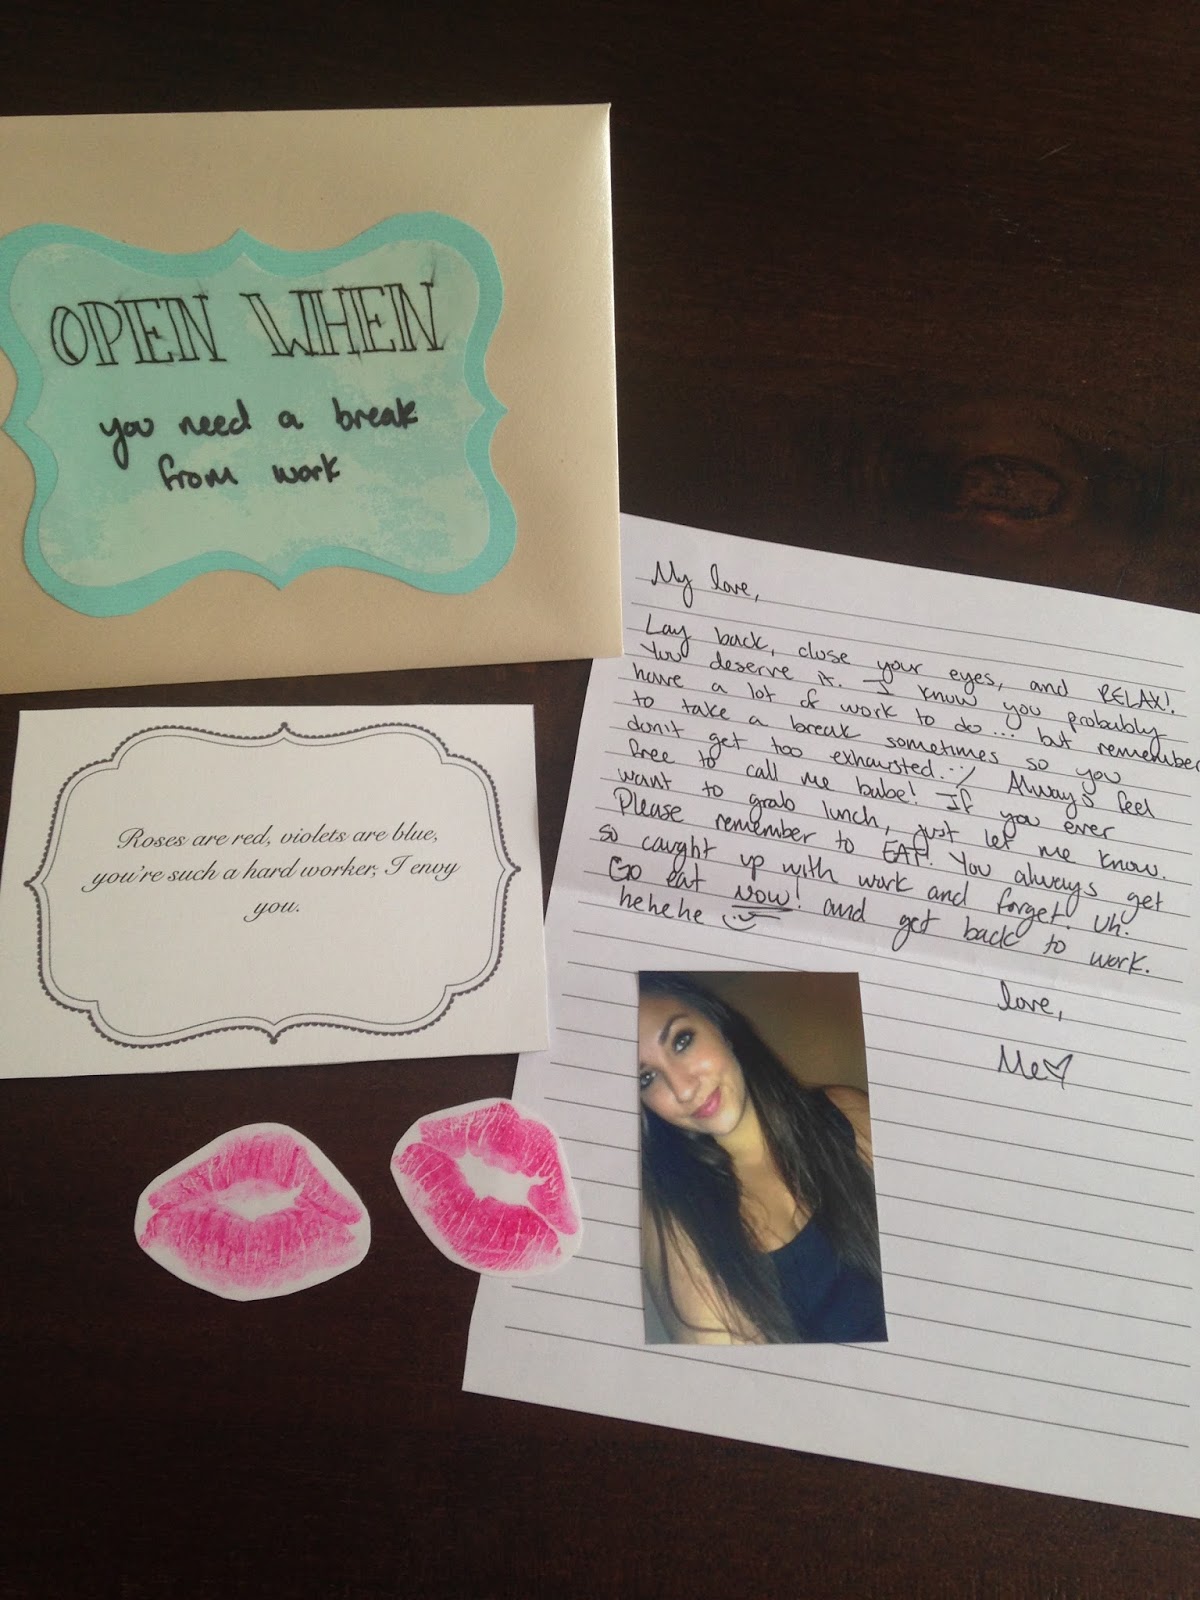 OPEN WHEN
you need a break
from work
Roses are red, violets are blue,
you're such a hard worker, I envy
you.
My love,
Lay back, close your eyes, and RELAX!
You deserve it. I know you probably
have a lot of work to do... but remember
to take a break sometimes so you
don't get too exhausted. :/ Always feel
free to call me babe! If you ever
want to grab lunch, just let me know.
Please remember to EAT! You always get
so caught up with work and forget. Uh.
Go eat now! and get back to work.
hehehe :)
love,
Me♡